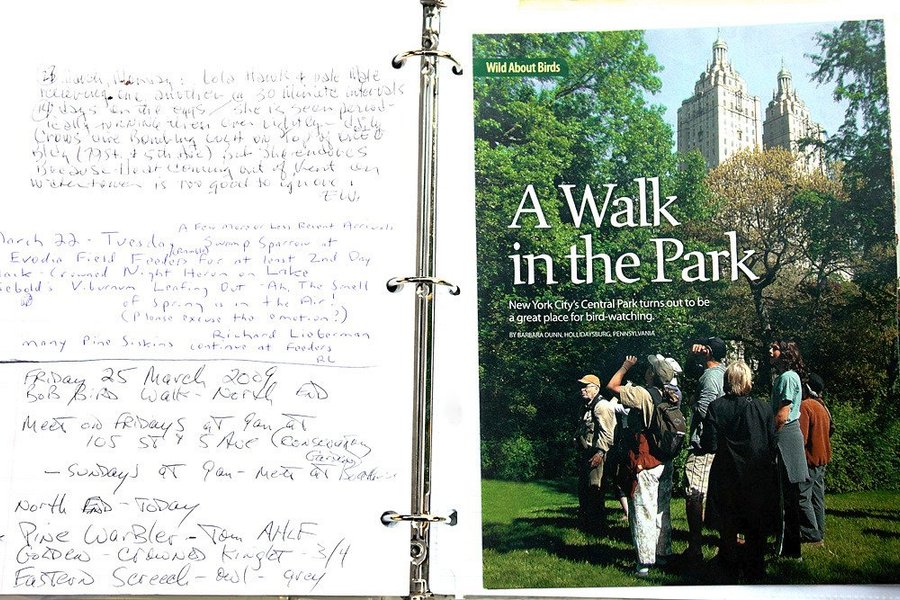 Lola Hawk & pale Male
relieving one another @ 30 minute intervals
days on the eggs / she is seen period-
ically turning them over
Crows are Bombing
Bldg (79st & 5th Ave) But She endures
Because Heat Coming out of Vent on
is too good to ignore!
E.W.
A Few More or Less Recent Arrivals
March 22 - Tuesday Swamp Sparrow at
Evodia Field Feeders For at least 2nd Day
Crowned Night Heron on Lake
Viburnum Leafing Out - Ah, The Smell
of Spring is in the Air!
(Please excuse the emotion?)
Richard Lieberman
many Pine Siskins continue at Feeders
RL
FRIDAY 25 March 2009
BOB BIRD Walk - North END
MEET on FRIDAYS AT 9am at
105 ST & 5 Ave (Conservatory
Garden)
- SUNDAYS AT 9am - MEET at Boathouse
North END - TODAY
Pine Warbler - Tom AHLF
GOLDEN - CROWNED Kinglet - 3/4
Eastern Screech - owl - grey
Wild About Birds
A Walk
in the Park
New York City's Central Park turns out to be
a great place for bird-watching.
BY BARBARA DUNN, HOLLIDAYSBURG, PENNSYLVANIA